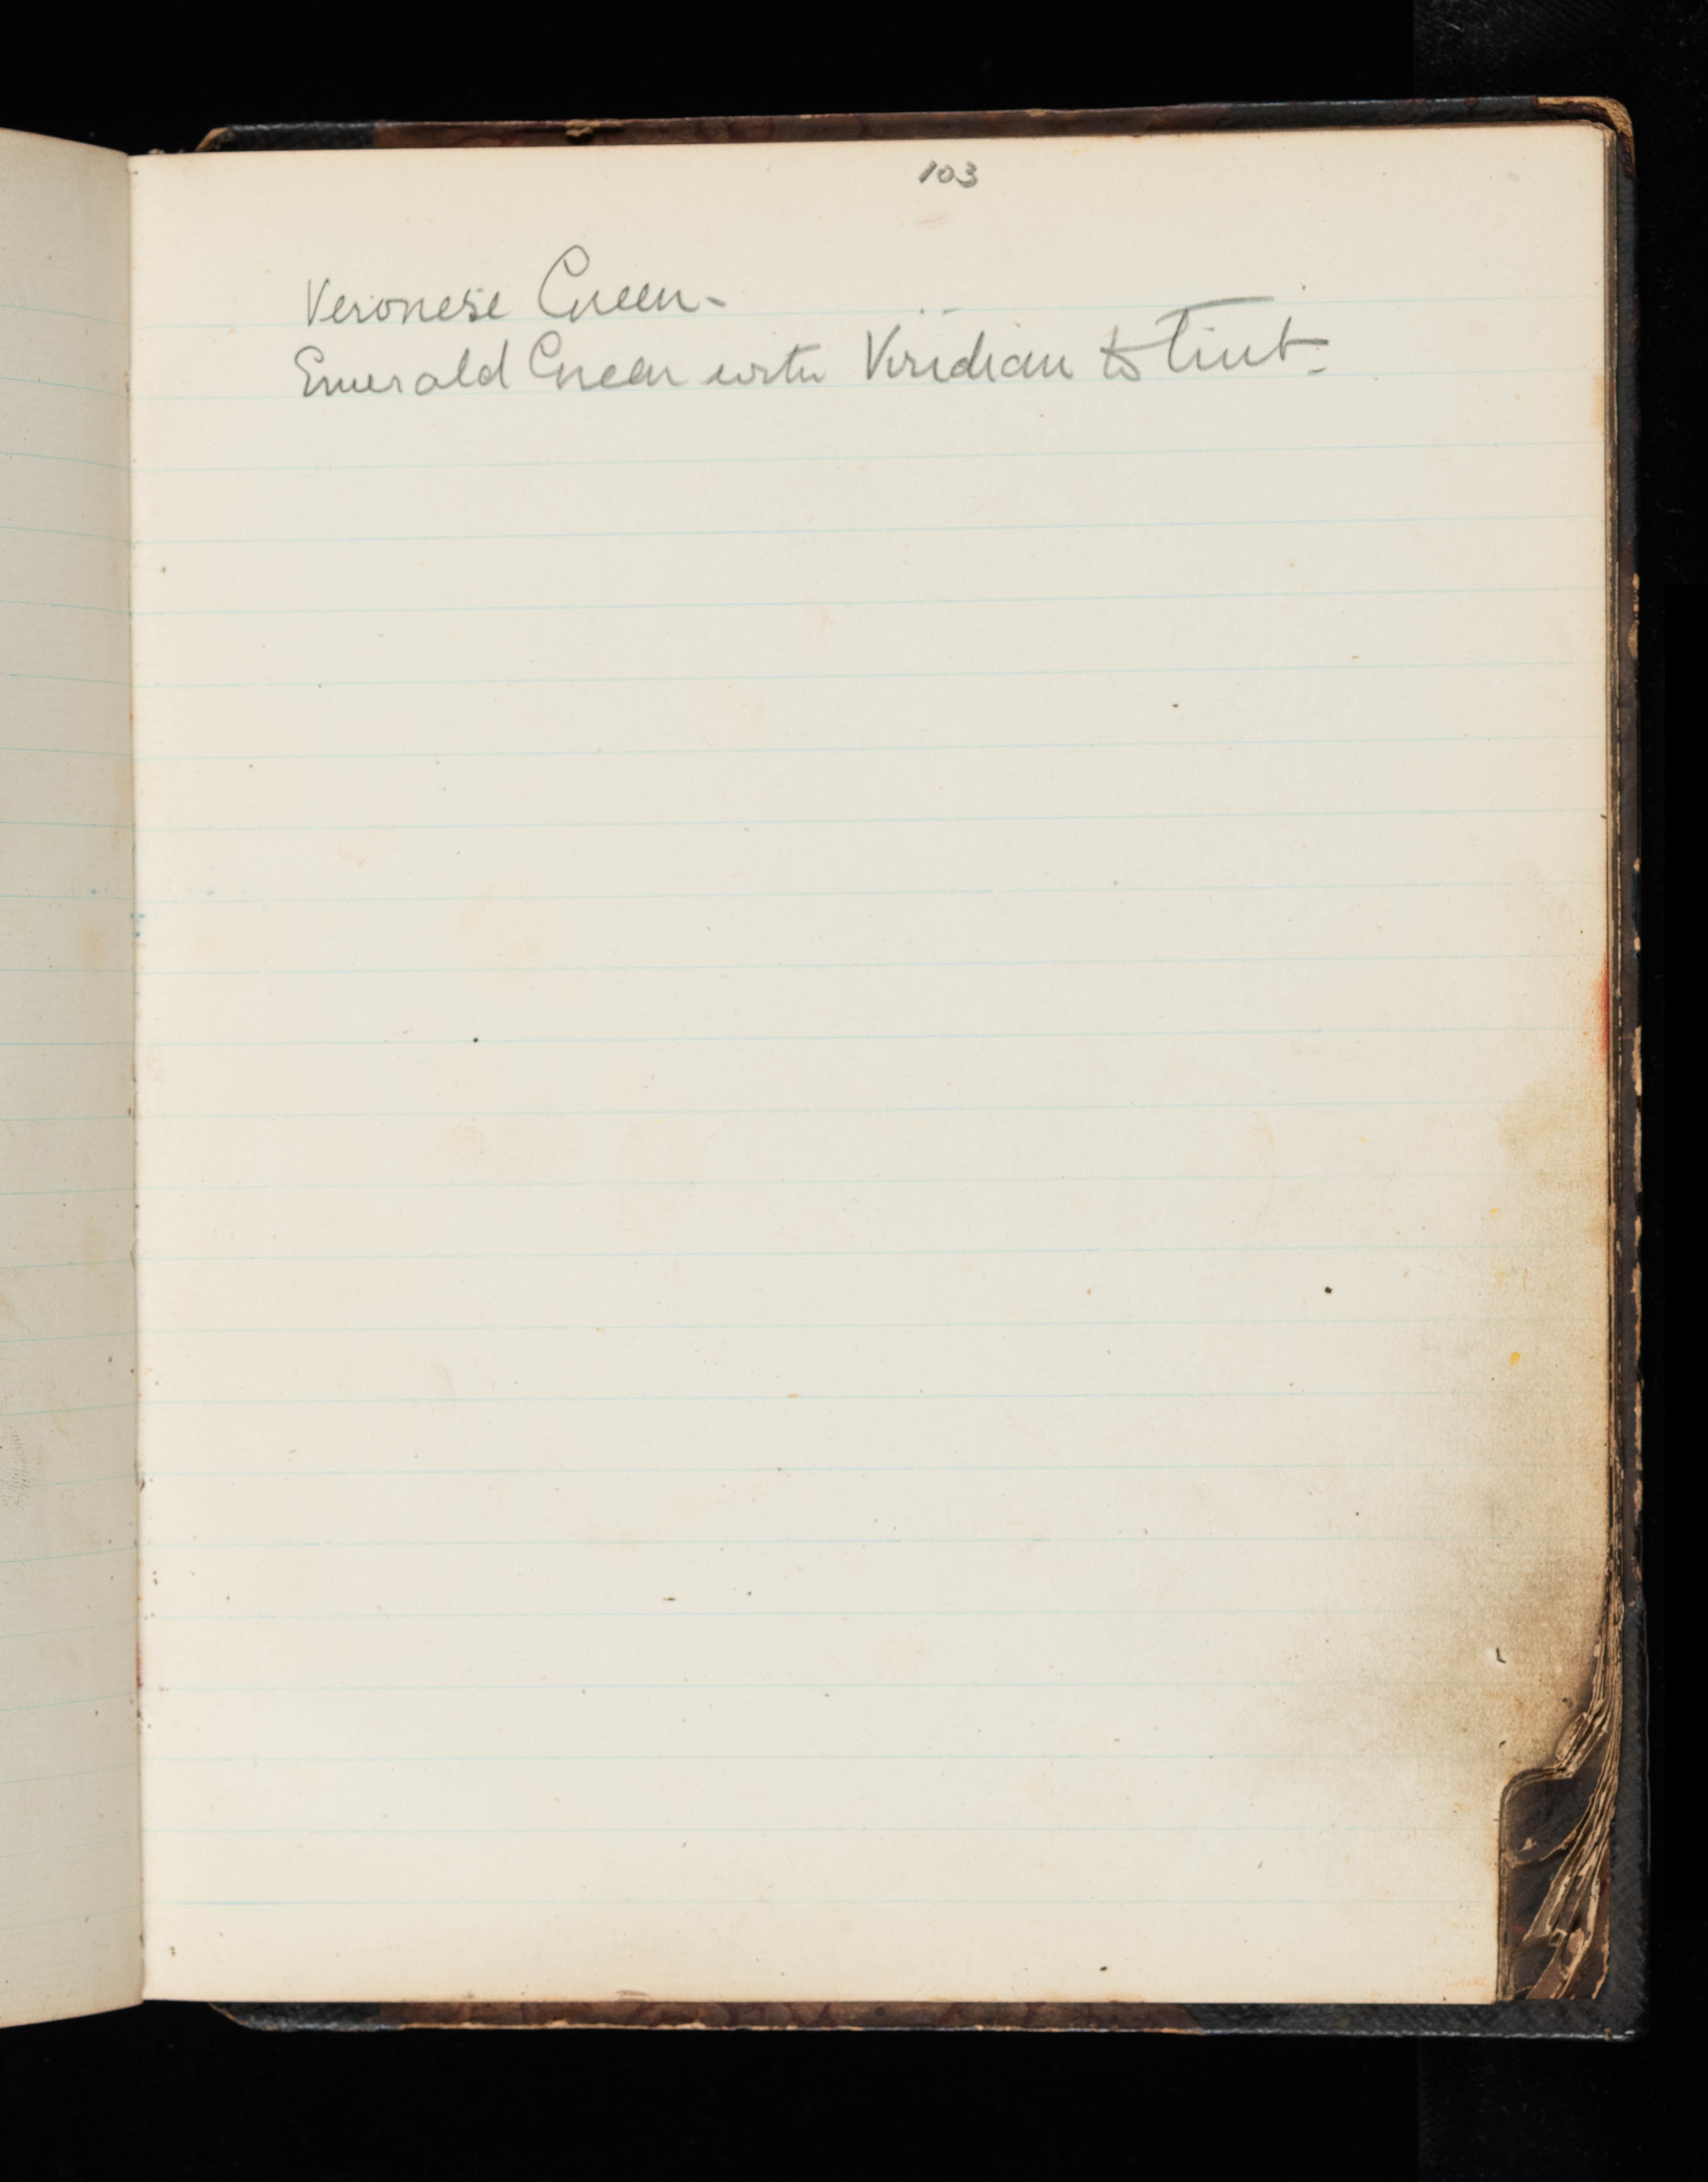 103
Veronese Green-
Emerald Green with Viridian to Tint.